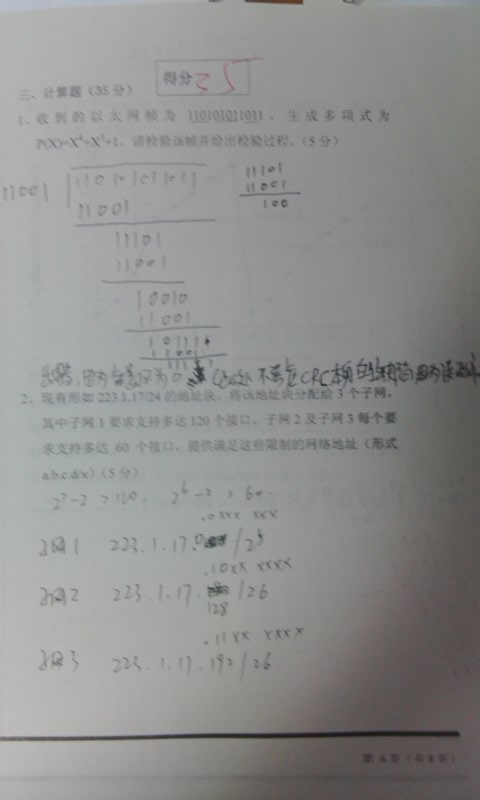 得分 25
三、计算题（35 分）
1、收到的以太网帧为 110101011011，生成多项式为
P(X)=X⁴+X³+1，请检验该帧并给出检验过程。（5 分）
11001
11001
11101
11001
10010
11001
10111
11001
11101
11001
100
2、现有形如 223.1.17/24 的地址块，将该地址块分配给 3 个子网，
其中子网 1 要求支持多达 120 个接口，子网 2 及子网 3 每个要
求支持多达 60 个接口，提供满足这些限制的网络地址（形式
a.b.c.d/x）（5 分）
2⁷-2 > 120， 2⁶-2 > 60
.0xxx xxx
子网 1 223.1.17.0/25
.10xx xxxx
子网 2 223.1.17. /26
128
.11xx xxxx
子网 3 223.1.17.192/26
第 A 卷（共 8 卷）